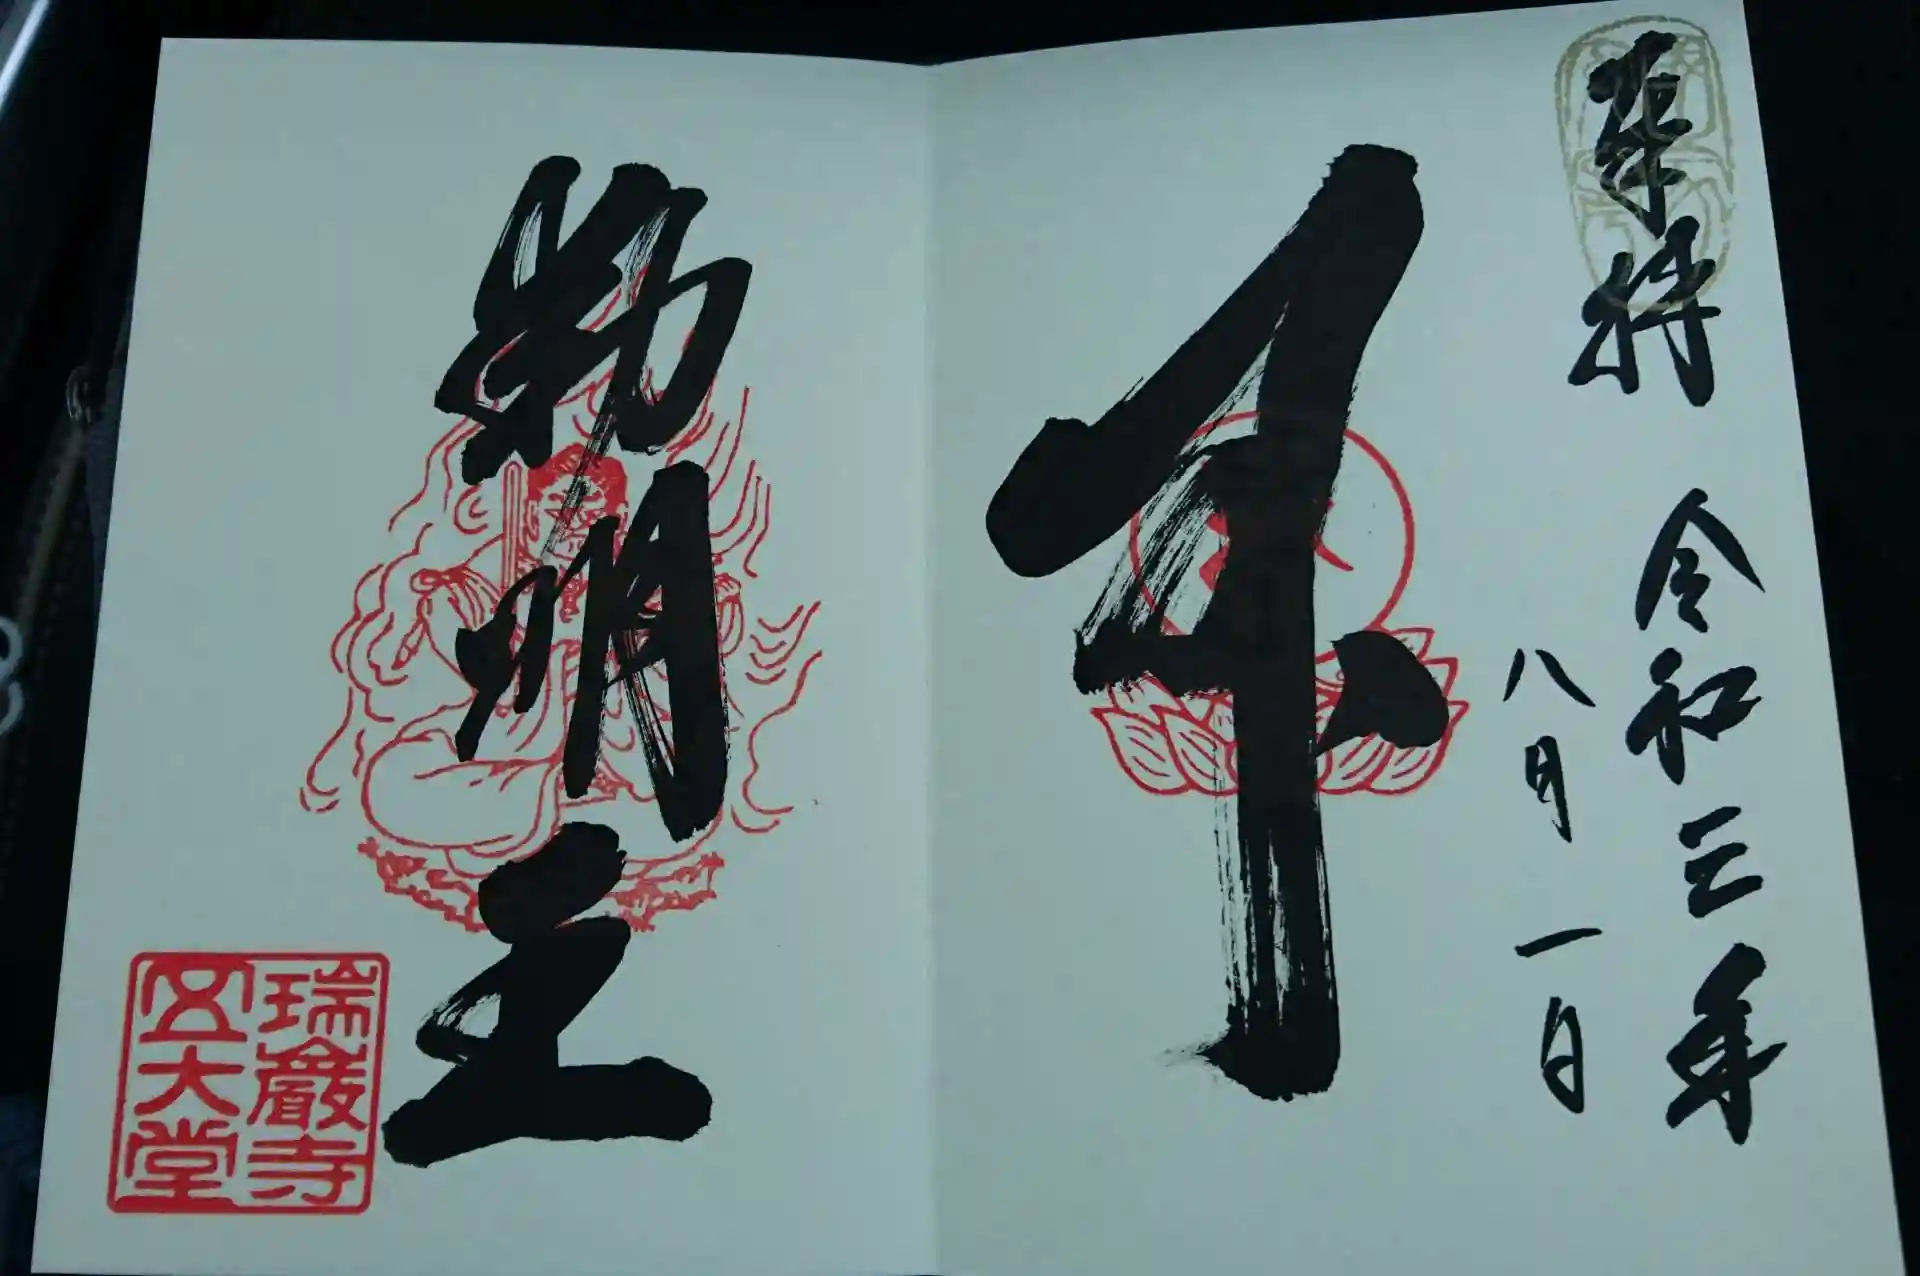 奉拝
令和三年
八月一日
不
動明王
瑞巖寺
五大堂